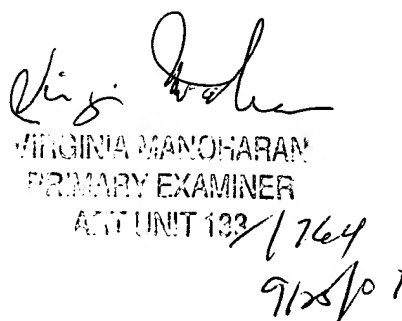 VIRGINIA MANOHARAN
PRIMARY EXAMINER
ART UNIT 133/1764
9/25/07